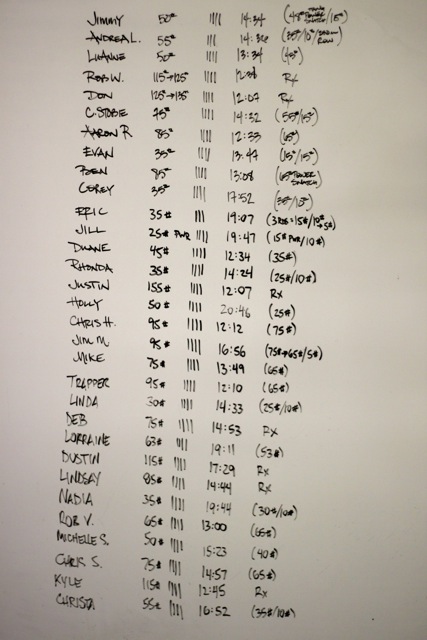 JIMMY 50# |||| 14:34 (45# POWER SNATCH/15#)
ANDREA L. 55# ||| 14:36 (35#/10#/ ROW)
LUANNE 50# |||| 13:34 (45#)
ROB W. 115#→125# |||| 12:38 Rx
DON 125#→135# |||| 12:07 Rx
C. STOBIE 75# |||| 14:32
AARON R. 85# |||| 12:33 (65#)
EVAN 35# |||| 13:47 (15#/15#)
BEN 85# |||| 13:08 (65# POWER SNATCH)
COREY 35# |||| 17:52 (35#/15#)
ERIC 35# ||| 19:07 (3 RDS=15#/10#→5#)
JILL 25# PWR |||| 19:47 (15# PWR/10#)
DUANE 45# |||| 12:34 (35#)
RHONDA 35# |||| 14:24 (25#/10#)
JUSTIN 155# |||| 12:07 Rx
HOLLY 50# |||| 20:46 (25#)
CHRIS H. 95# |||| 12:12 (75#)
JIM M. 95# |||| 16:56 (75#→65#/5#)
MIKE 75# |||| 13:49 (65#)
TRAPPER 95# |||| 12:10 (65#)
LINDA 30# |||| 14:33 (25#/10#)
DEB 75# |||| 14:53 Rx
LORRAINE 63# |||| 19:11 (53#)
DUSTIN 115# |||| 17:29 Rx
LINDSAY 85# |||| 14:44 Rx
NADIA 35# |||| 19:44 (30#/10#)
ROB V. 65# |||| 13:00 (65#)
MICHELLE S. 50# |||| 15:23 (40#)
CHRIS S. 75# |||| 14:57 (65#)
KYLE 115# |||| 12:45 Rx
CHRISTA 55# |||| 16:52 (35#/10#)